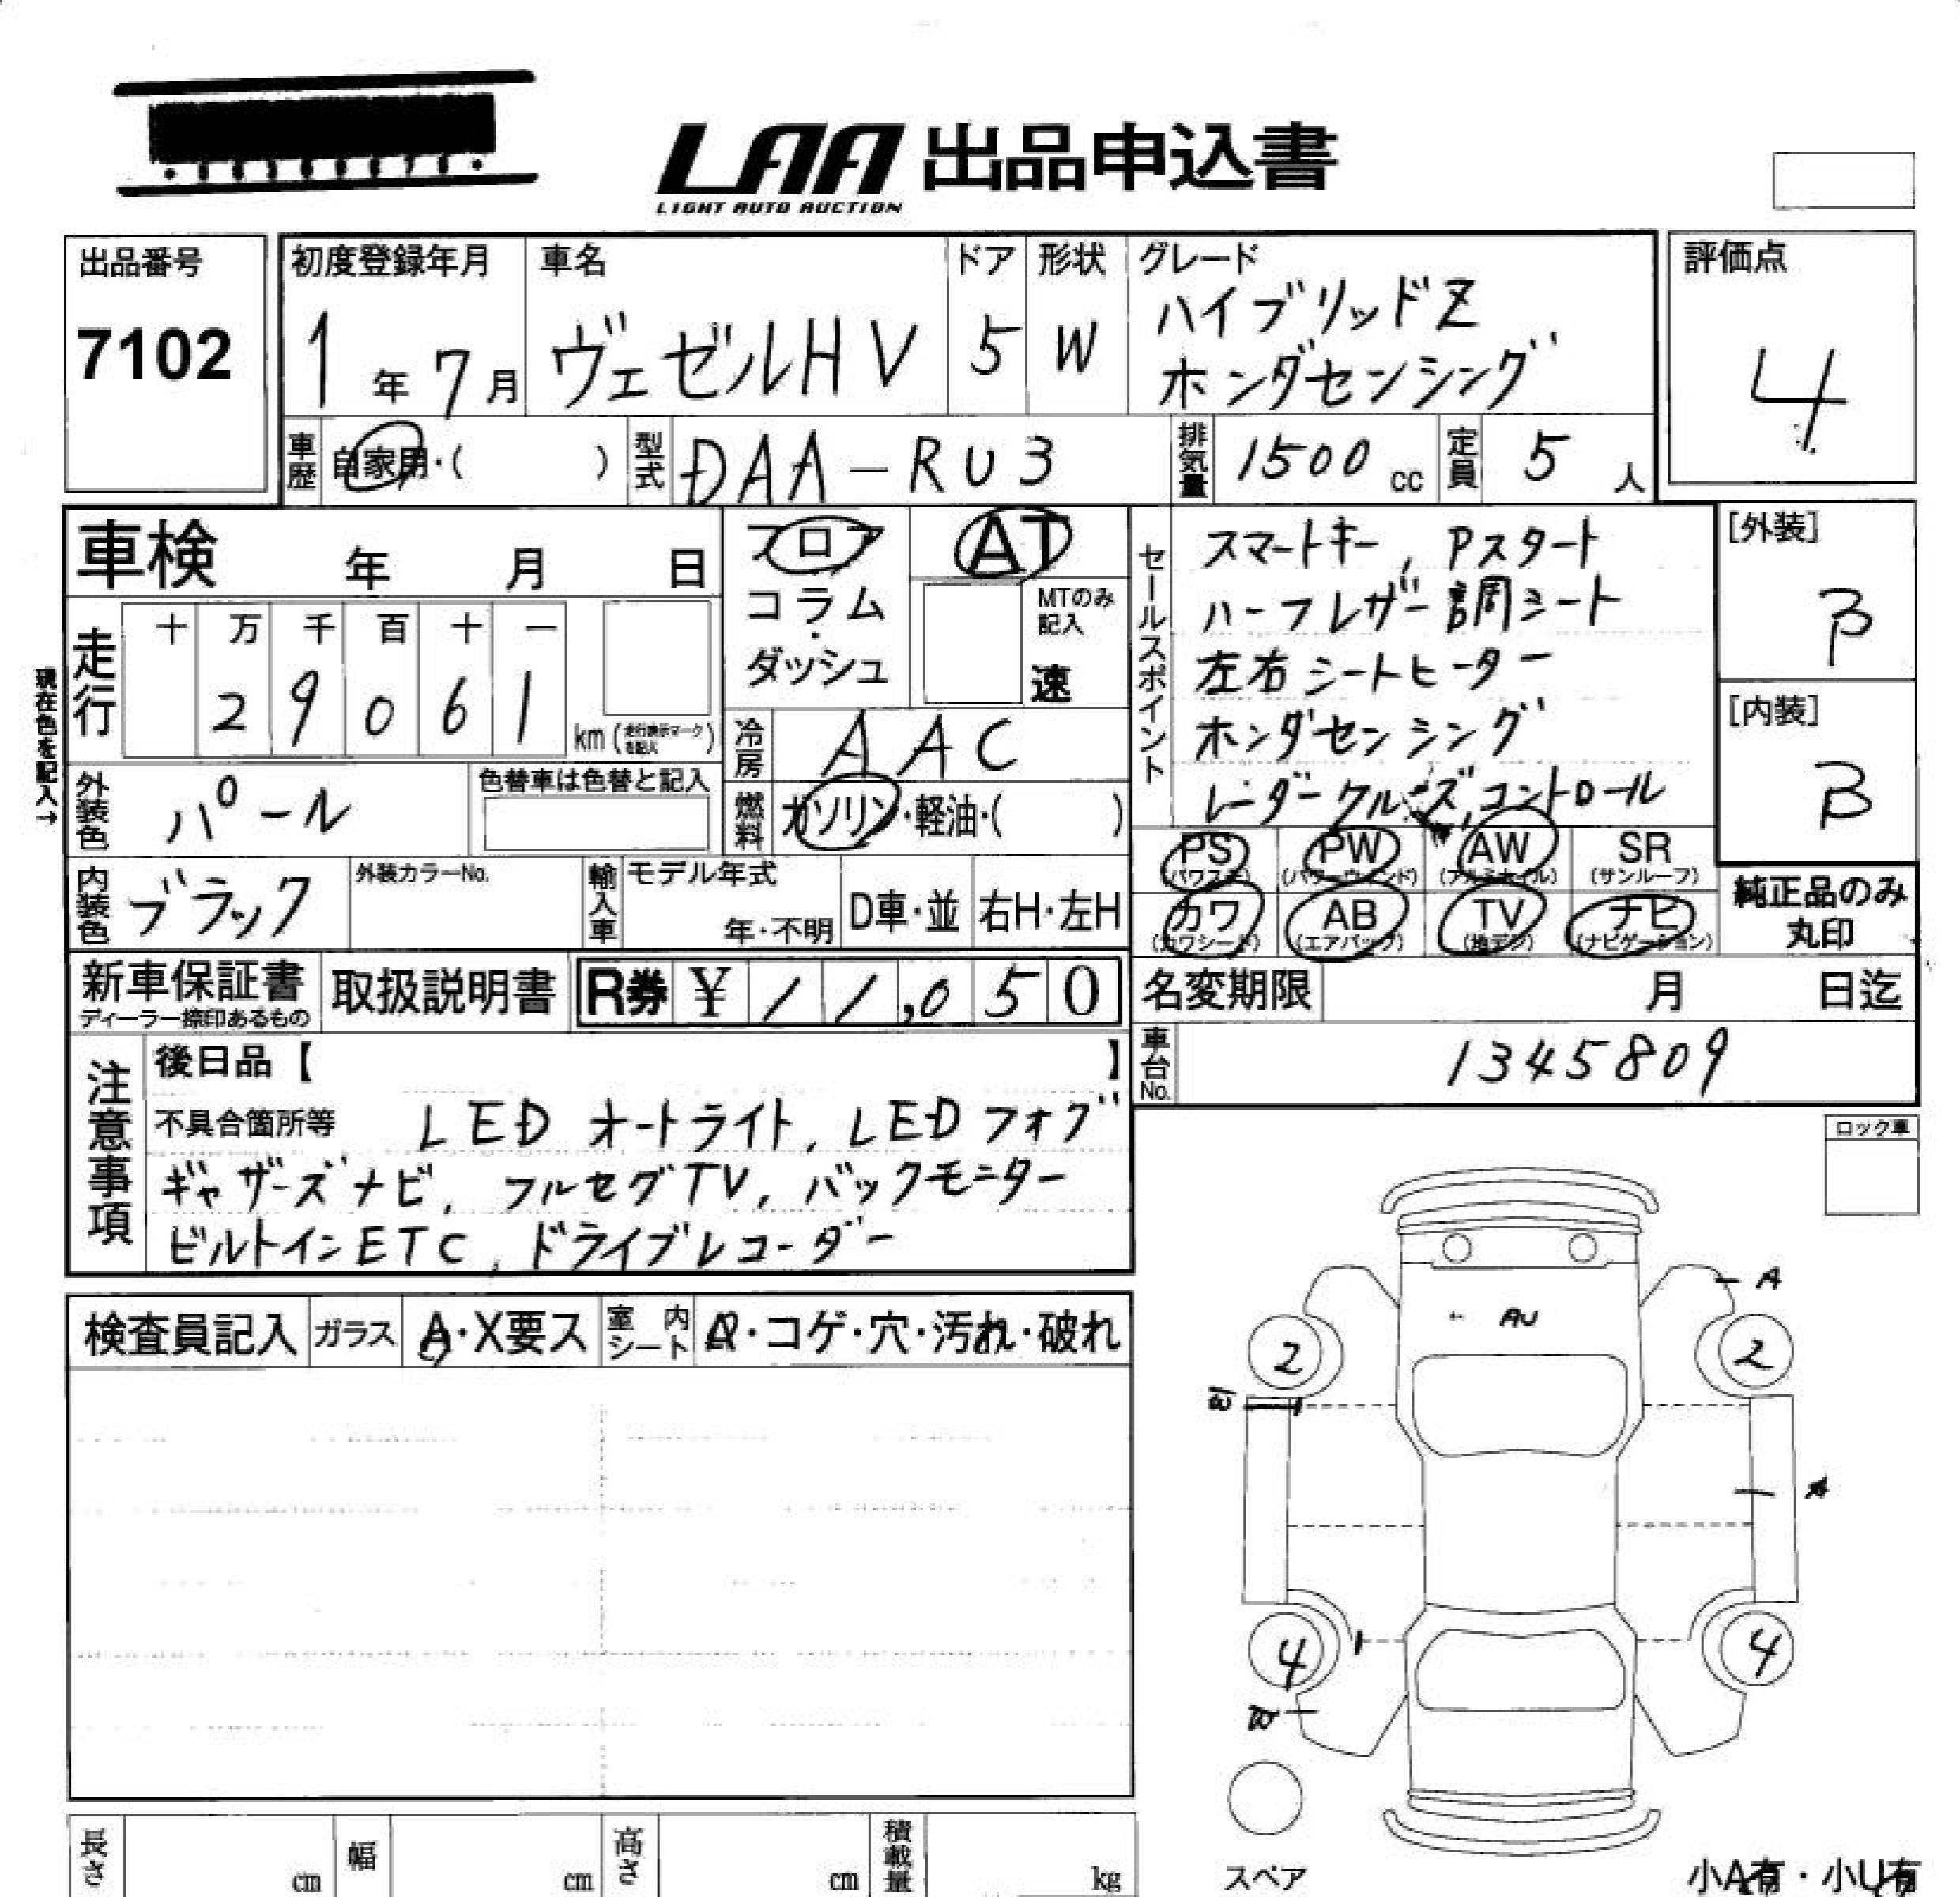 LAA 出品申込書
LIGHT AUTO AUCTION
出品番号
7102
初度登録年月
1年7月
車名
ヴェゼルHV
ドア
5
形状
W
グレード
ハイブリッドZ
ホンダセンシング
評価点
4
車歴
自家用・( )
型式
DAA-RU3
排気量
1500cc
定員
5人
車検 年 月 日
フロア
コラム
・
ダッシュ
AT
MTのみ
記入
速
セールスポイント
スマートキー, Pスタート
ハーフレザー調シート
左右シートヒーター
ホンダセンシング
レーダークルーズコントロール
[外装]
B
[内装]
B
現在色を記入→
走行
十 万 千 百 十 一
2 9 0 6 1
km (走行表示マークを記入)
冷房
AAC
燃料
ガソリン・軽油・( )
外装色
パール
色替車は色替と記入
内装色
ブラック
外装カラーNo.
輸入車
モデル年式
年・不明
D車・並
右H・左H
PS
(パワステ)
PW
(パワーウィンド)
AW
(アルミホイル)
SR
(サンルーフ)
カワ
(カワシート)
AB
(エアバック)
TV
(地デジ)
ナビ
(ナビゲーション)
純正品のみ
丸印
新車保証書
ディーラー捺印あるもの
取扱説明書
R券 ¥11,050
名変期限 月 日迄
車台No.
1345809
注意事項
後日品【 】
不具合箇所等 LED オートライト, LED フォグ
ギャザーズナビ, フルセグTV, バックモニター
ビルトインETC, ドライブレコーダー
ロック車
検査員記入
ガラス
A・X要ス
室内
シート
・コゲ・穴・汚れ・破れ
A
AU
2
2
W
A
4
4
W
スペア
長さ cm
幅 cm
高さ cm
積載量 kg
小A有・小U有